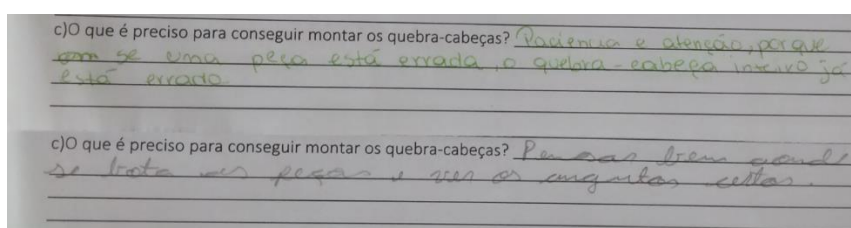 c)O que é preciso para conseguir montar os quebra-cabeças? Paciencia e atenção, porque
se uma peça está errada, o quebra-cabeça inteiro já
está errado
c)O que é preciso para conseguir montar os quebra-cabeças? Pensar bem aonde
se bota as peças e ver os certas.